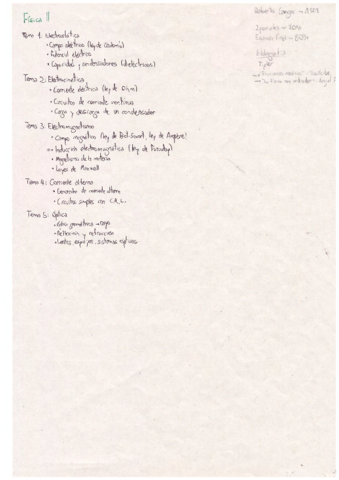 Física II
Tema 1: Electrostática
• Campo eléctrico (ley de Coulomb)
• Potencial eléctrico
• Capacidad y condensadores (dieléctricos)
Tema 2: Electrocinética
• Corriente eléctrica (ley de Ohm)
• Circuitos de corriente continua
• Carga y descarga de un condensador
Tema 3: Electromagnetismo
• Campo magnético (ley de Biot-Savart, ley de Ampère)
• Inducción electromagnética (ley de Faraday)
• Magnetismo de la materia
• Leyes de Maxwell
Tema 4: Corriente alterna
• Generador de corriente alterna
• Circuitos simples con C.A.
Tema 5: Óptica
• Óptica geométrica → rayo
• Reflexión y refracción
• Lentes, espejos, sistemas ópticos
Examen Final → 80%